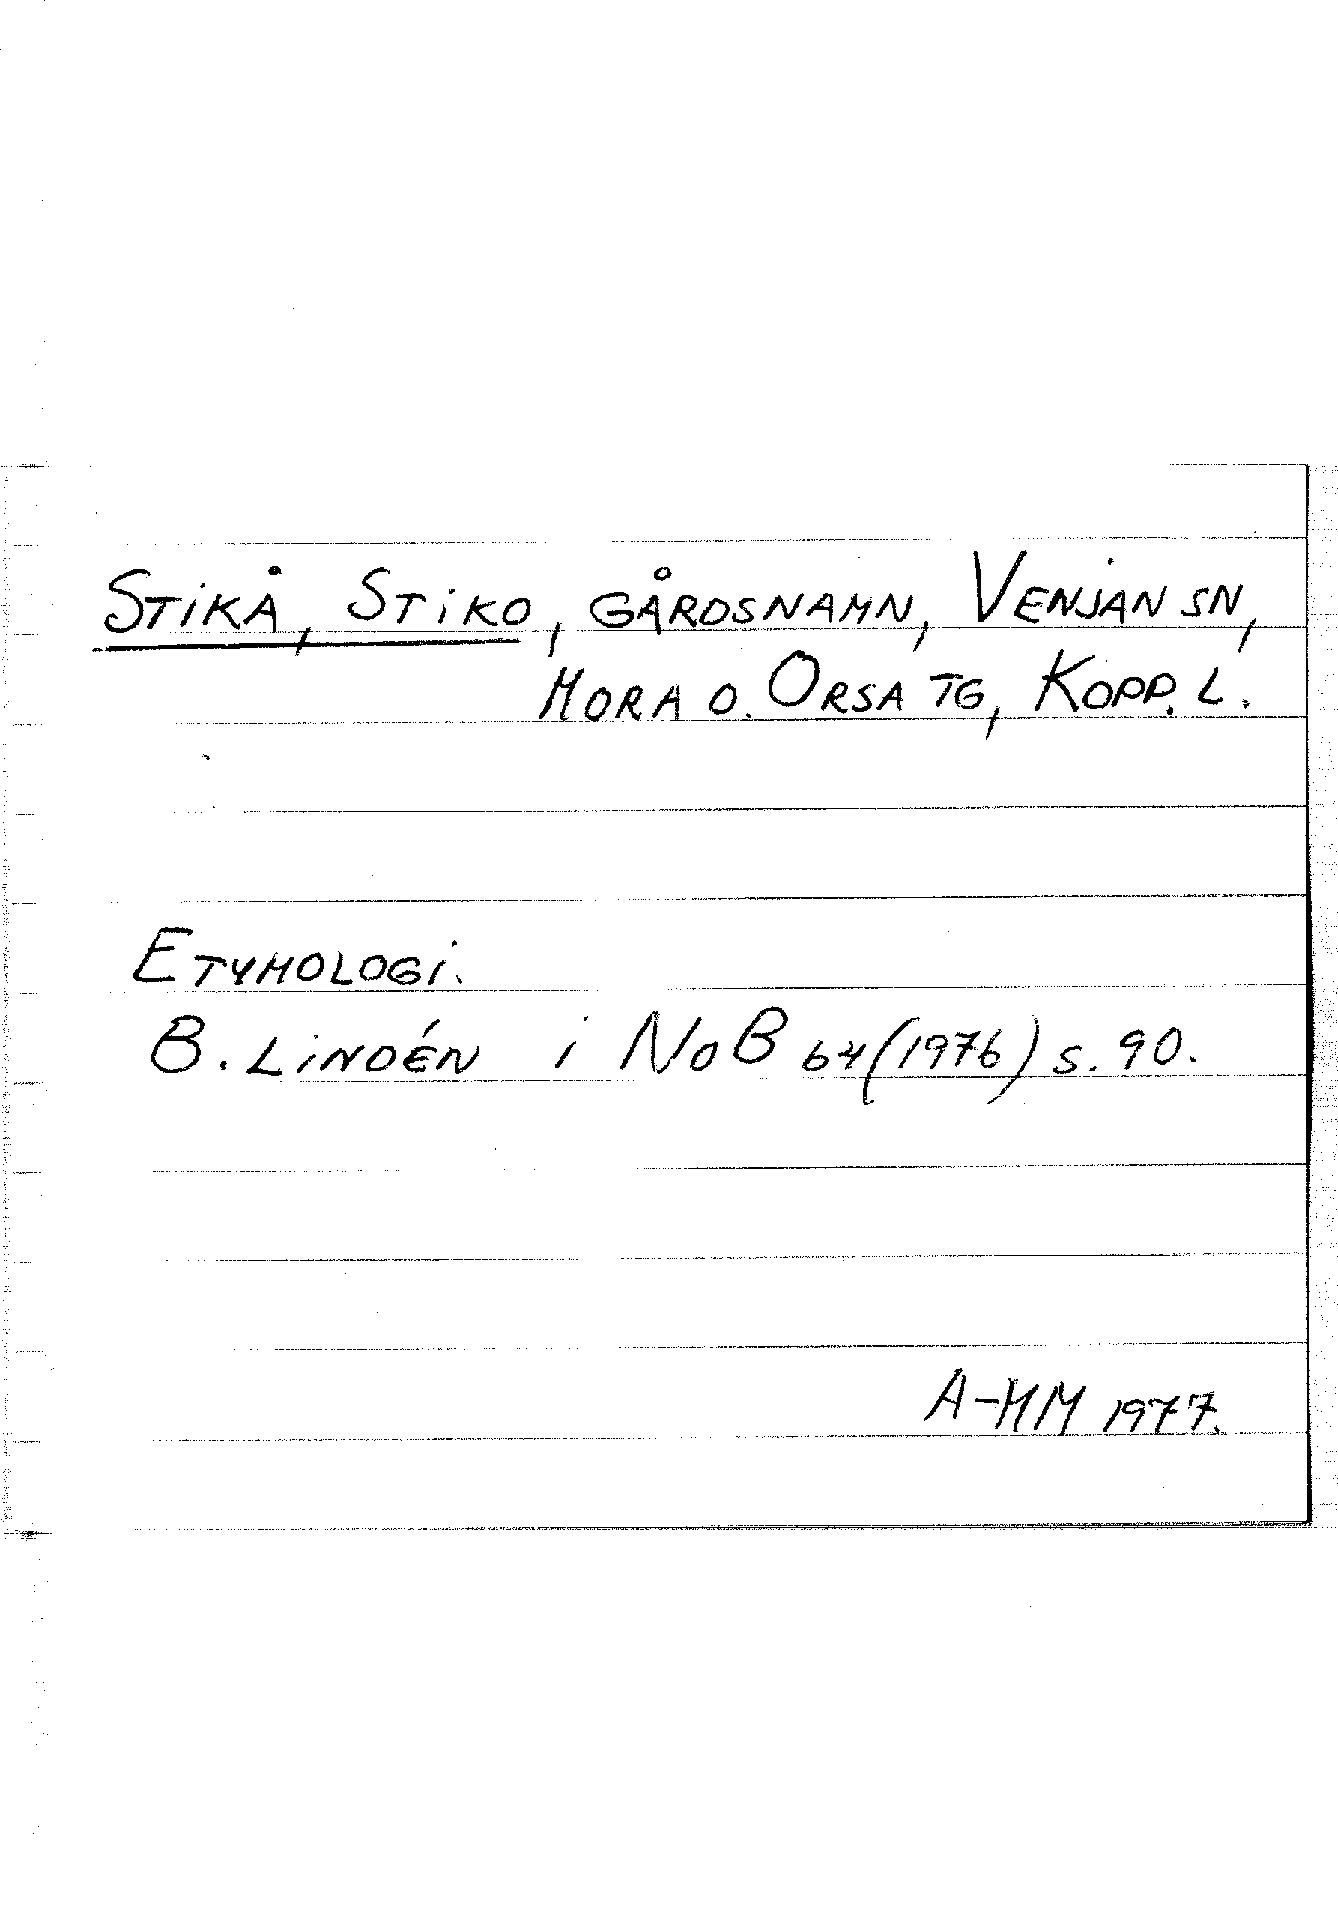 STIKÅ, STIKO, GÅRDSNAMN, VENJAN SN,
MORA O. ORSA TG, KOPP. L.
ETYMOLOGI.
B. LINDÉN i NoB 64 (1976) s. 90.
A-MM 1977.